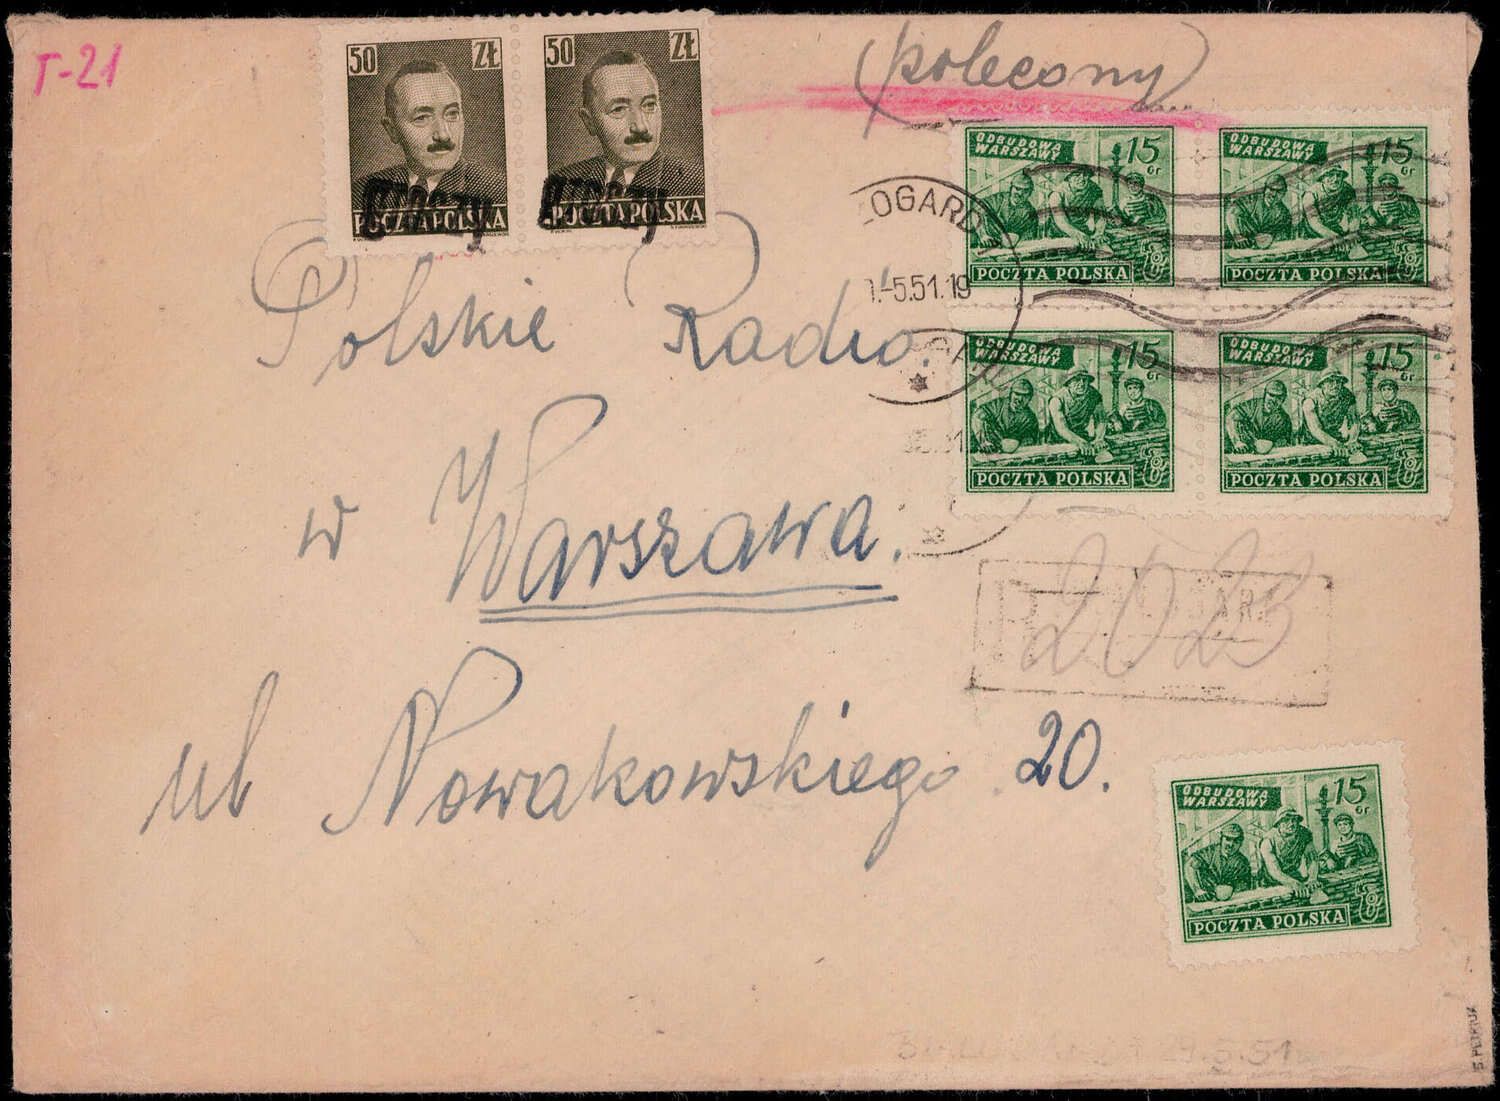 T-21
50 ZŁ
POCZTA POLSKA
Groszy
50 ZŁ
POCZTA POLSKA
Groszy
(polecony)
ODBUDOWA
WARSZAWY
15
Gr
POCZTA POLSKA
ODBUDOWA
WARSZAWY
15
Gr
POCZTA POLSKA
OGARD
-5.51.19
ODBUDOWA
WARSZAWY
15
Gr
POCZTA POLSKA
ODBUDOWA
WARSZAWY
15
Gr
POCZTA POLSKA
Polskie Radio.
w Warszawa.
R
2023
ul Nowakowskiego 20.
ODBUDOWA
WARSZAWY
15
Gr
POCZTA POLSKA
S. PETRIUK